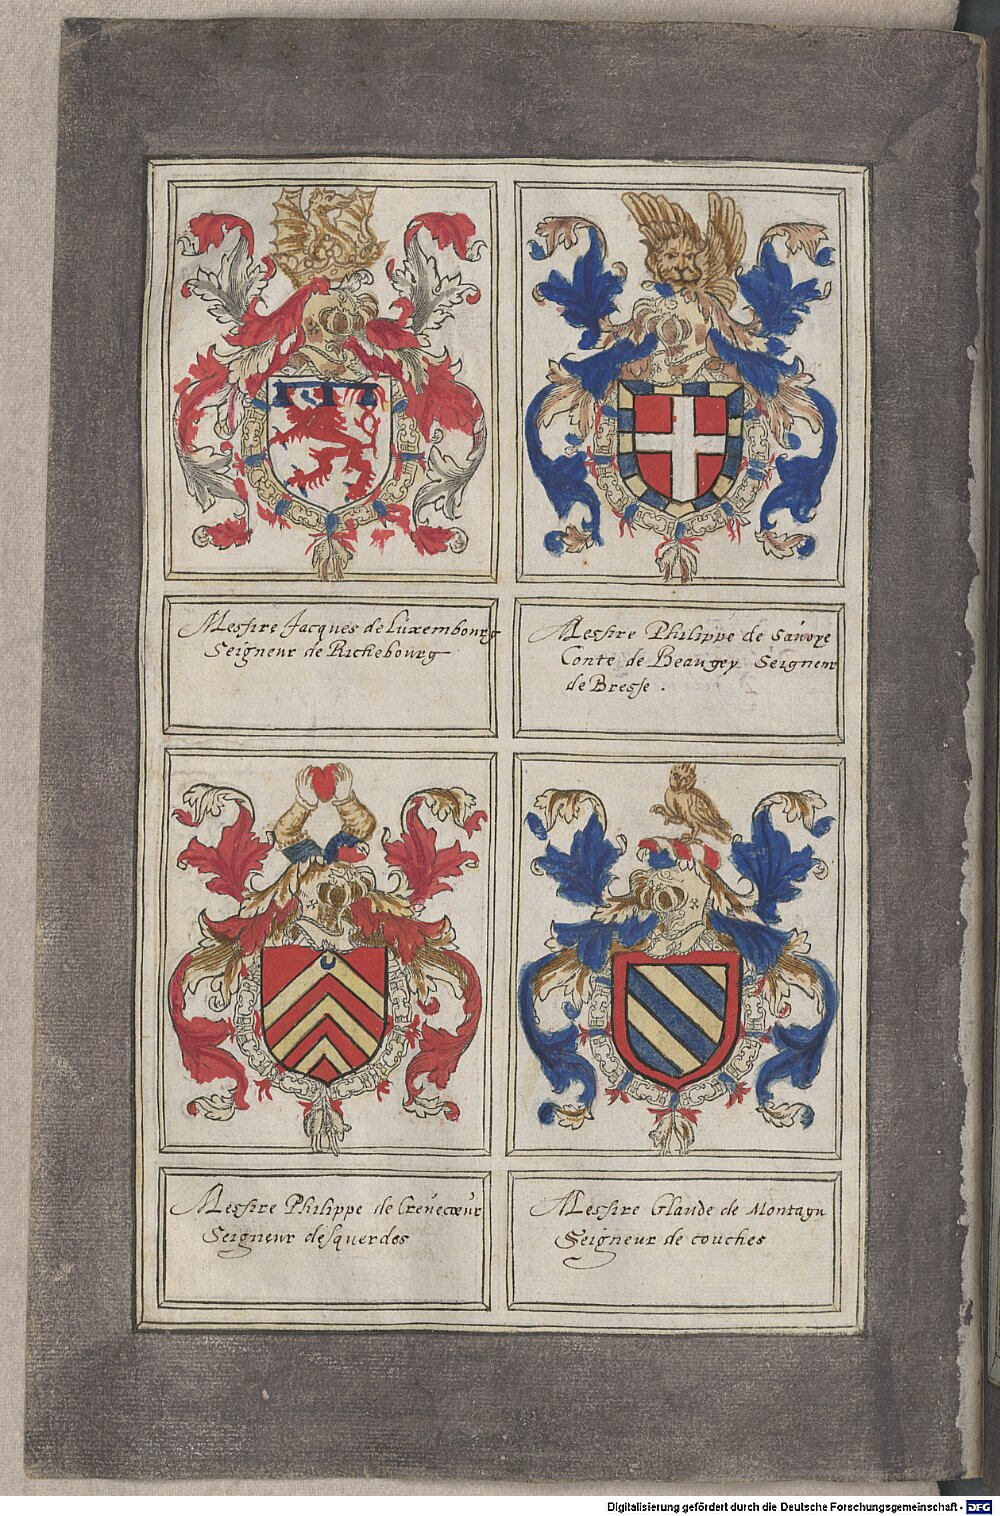 Messire Jacques de Luxembourg
Seigneur de Richebourg
Messire Philippe de Savoye
Conte de Beaugey Seigneur
de Bresse .
Messire Philippe de Crevecœur
Seigneur desquerdes
Messire Glaude de Montagu
Seigneur de couches
Digitalisierung gefördert durch die Deutsche Forschungsgemeinschaft - DFG